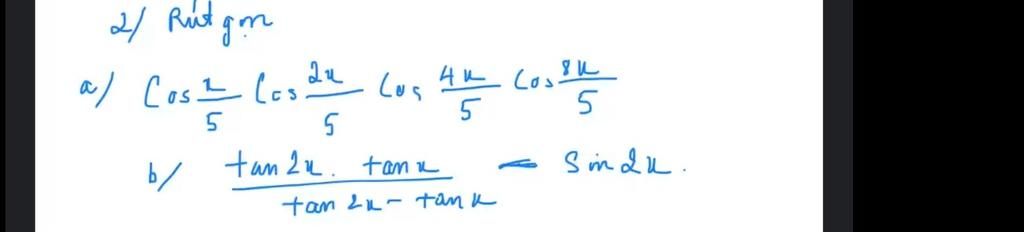 2/ Rút gọn
a) Cos x/5 Cos 2x/5 Cos 4x/5 Cos 8x/5
b/ tan2x. tanx / tan2x - tanx - Sin2x.